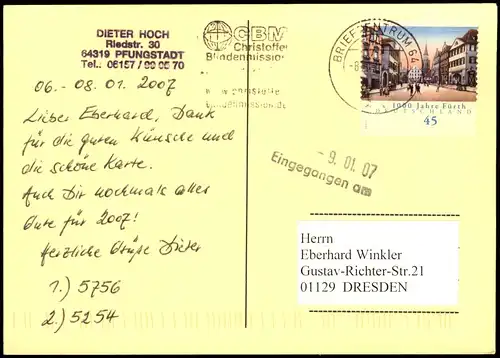 DIETER HOCH
Riedstr. 30
64319 PFUNGSTADT
Tel.: 06157 /
06.-08.01.2007
Lieber Eberhard, Dank
für die guten Wünsche und
die schöne Karte.
Auch Dir nochmals alles
Gute für 2007!
Herzliche Grüße Dieter
1.) 5756
2.) 5254
CBM
Christoffel
Blindenmission
BRIEFZENTRUM 64
1000 Jahre Fürth
DEUTSCHLAND
45
- 9. 01. 07
Eingegangen am
Herrn
Eberhard Winkler
Gustav-Richter-Str.21
01129 DRESDEN